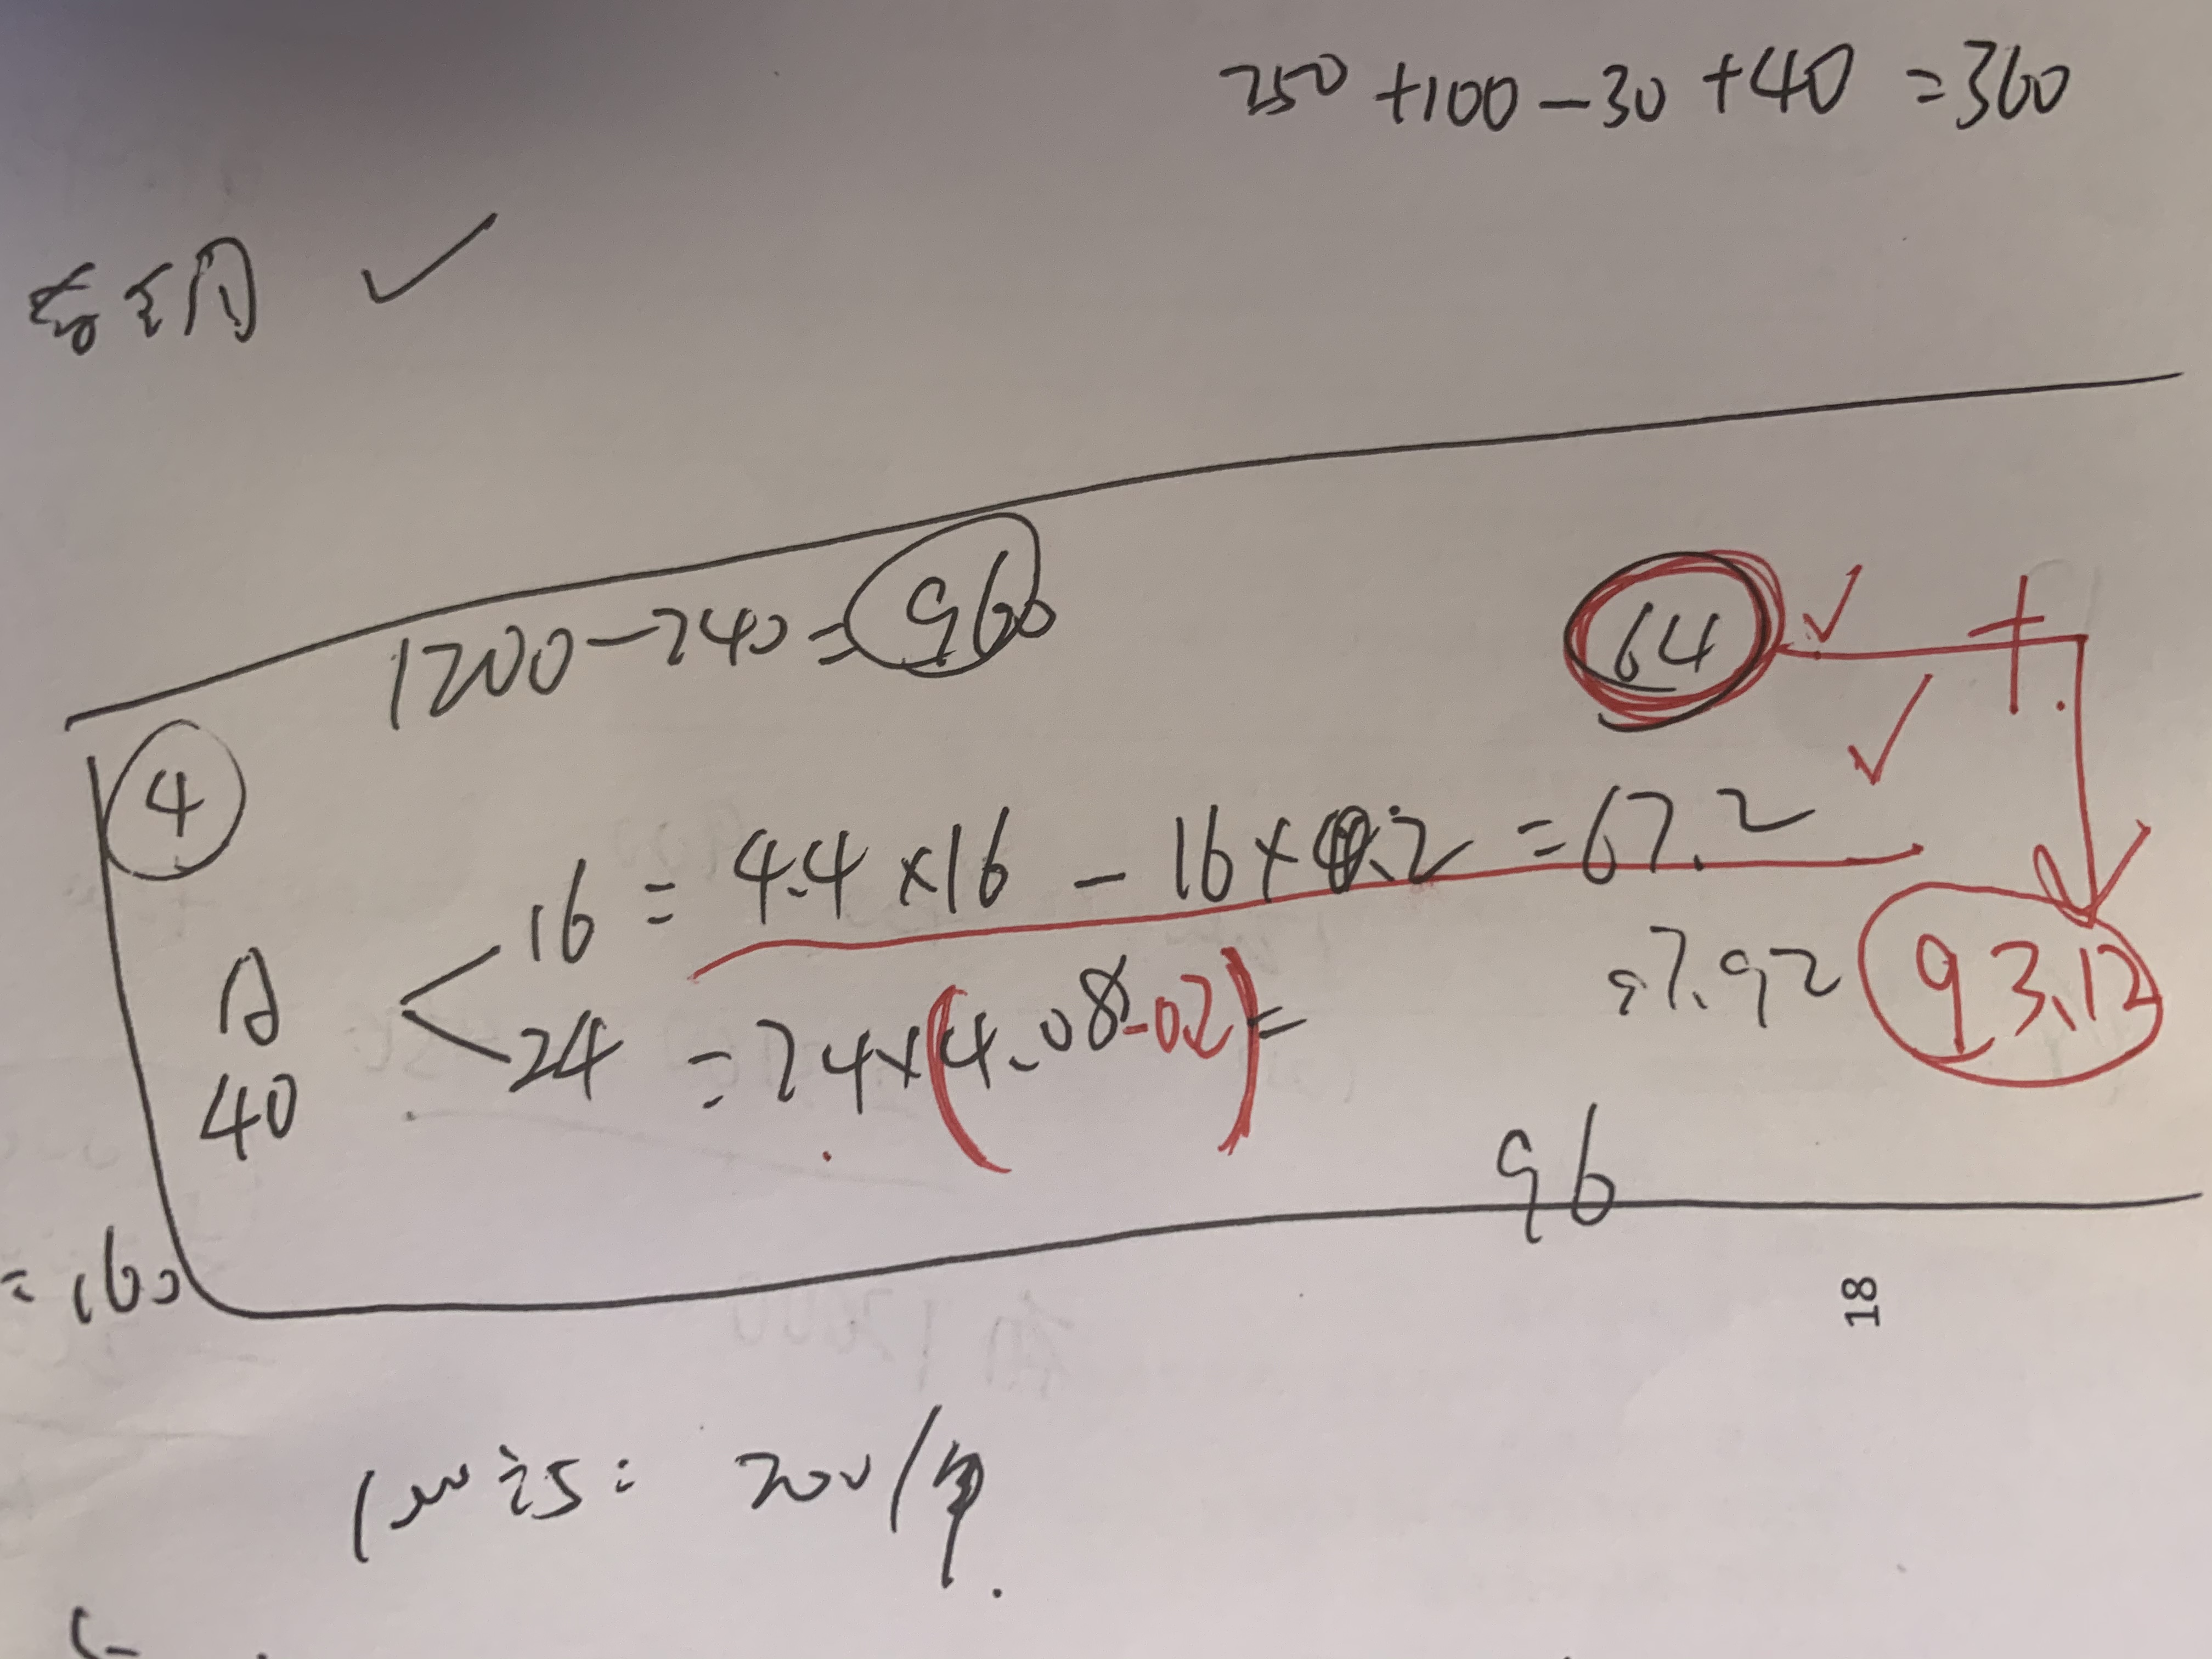 250+100-30+40=360
✓
1200-240=960
64 ✓ +
④
16=4.4×16-16×0.2=67.2 ✓
A 40
24=24×(4.08-0.2)= 97.92 93.12
96
=160
18
200/年.